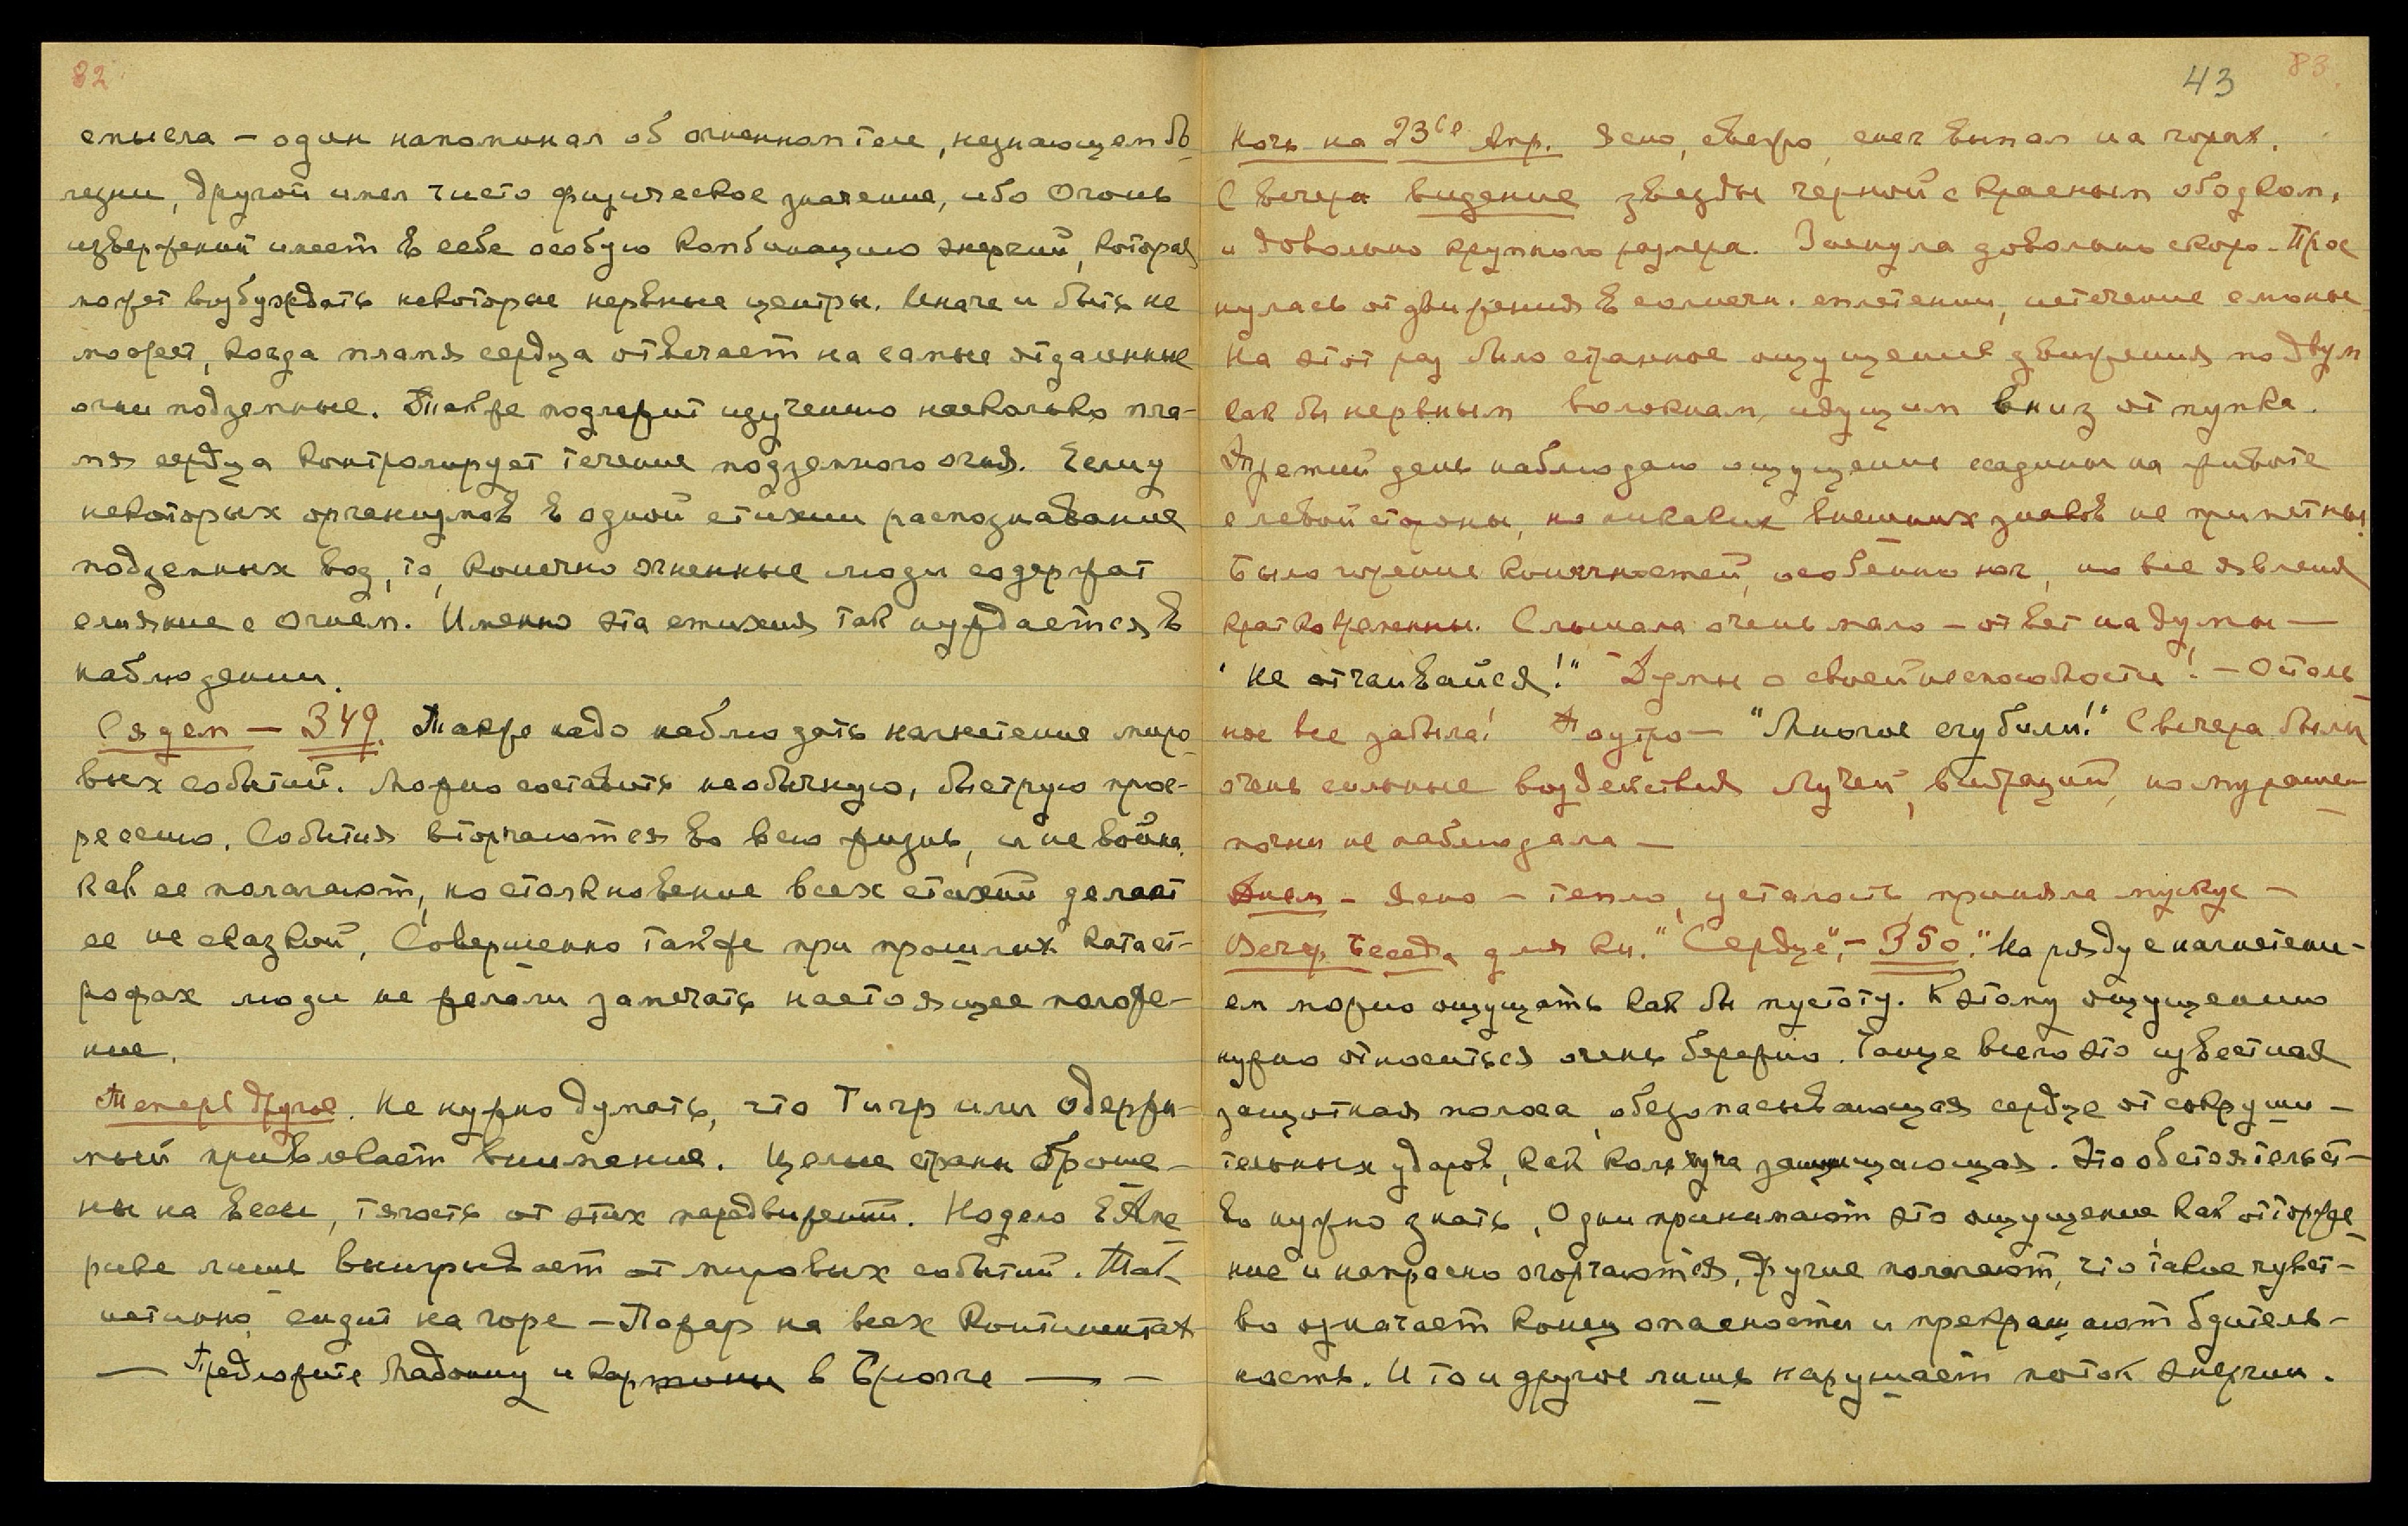 82
смысла – один напоминал об огненном теле, незнающем бо-
лезни, другой имел чисто физическое значение, ибо Огонь
извержений имеет в себе особую комбинацию энергий, которая
может возбуждать некоторые нервные центры. Иначе и быть не
может, когда пламя сердца отвечает на самые отдаленные
огни подземные. Также подлежит изучению насколько пла-
мя сердца контролирует течение подземного огня. Если у
некоторых организмов в одной стихии распознавание
подземных вод, то, конечно огненные люди содержат
слияние с Огнем. Именно эта стихия так нуждается в
наблюдении.
Сядем – 349. Также надо наблюдать нагнетение миро-
вых событий. Можно составить необычную, быструю прог-
рессию. События вторгаются во всю жизнь, и не война,
как ее полагают, но столкновение всех стихий делает
ее не сказкой. Совершенно также при прошлых катаст-
рофах люди не желали замечать настоящее положе-
ние.
Теперь другое. Не нужно думать, что Тигр или Одержи-
мый привлекает внимание. Целые страны броше-
ны на весы, тягость от этих передвижений. Но дело в Аме
рике лишь выигрывает от мировых событий. Так
истинно, сидит на горе – Пожар на всех континентах
— Предложите Мадонну и картины в Брюгге — –
43 83
Ночь на 23ье Апр. Ясно, свежо, снег выпал на горах.
С вечера видение звезды черной с красным ободком,
и довольно крупного размера. Заснула довольно скоро. Прос
нулась от движения в солнечн. сплетении, истечение слюны
На этот раз было странное ощущение движения по двум
как бы нервным волокнам, идущим вниз от пупка.
Третий день наблюдаю ощущение ссадины на животе
с левой стороны, но никаких внешних знаков не приметны!
Было горение конечностей, особенно ног, но все явления
кратковременны. Слышала очень мало – ответ на думы —
"Не отчаивайся!" Думы о своей неспособности! – Осталь
ное все забыла! Под утро – "Многое сгубили!" С вечера были
очень сильные воздействия лучей, вибраций, но мурашек
почти не наблюдала —
Днем – Ясно – тепло, усталость, приняла мускус –
Вечер. Беседа для кн. "Сердце", – 350. "Наряду с нагнетени-
ем можно ощущать как бы пустоту. К этому ощущению
нужно относиться очень бережно. Чаще всего это известная
защитная полоса, обезопасывающая сердце от сокруши-
тельных ударов, как кольчуга защищающая. Это обстоятельст-
во нужно знать. Одни принимают это ощущение, как отторже
ние и напрасно огорчаются, другие полагают, что такое чувст-
во означает конец опасности и прекращают бдитель-
ность. И то и другое лишь нарушает поток энергии.